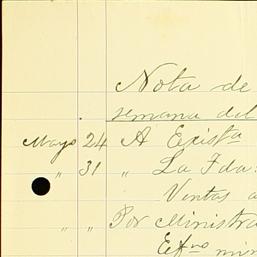 Nota de
semana del
Mayo 24 A Exist.a
" 31 " La Fda:
Ventas a
" " Por Ministra
Ef.vo min